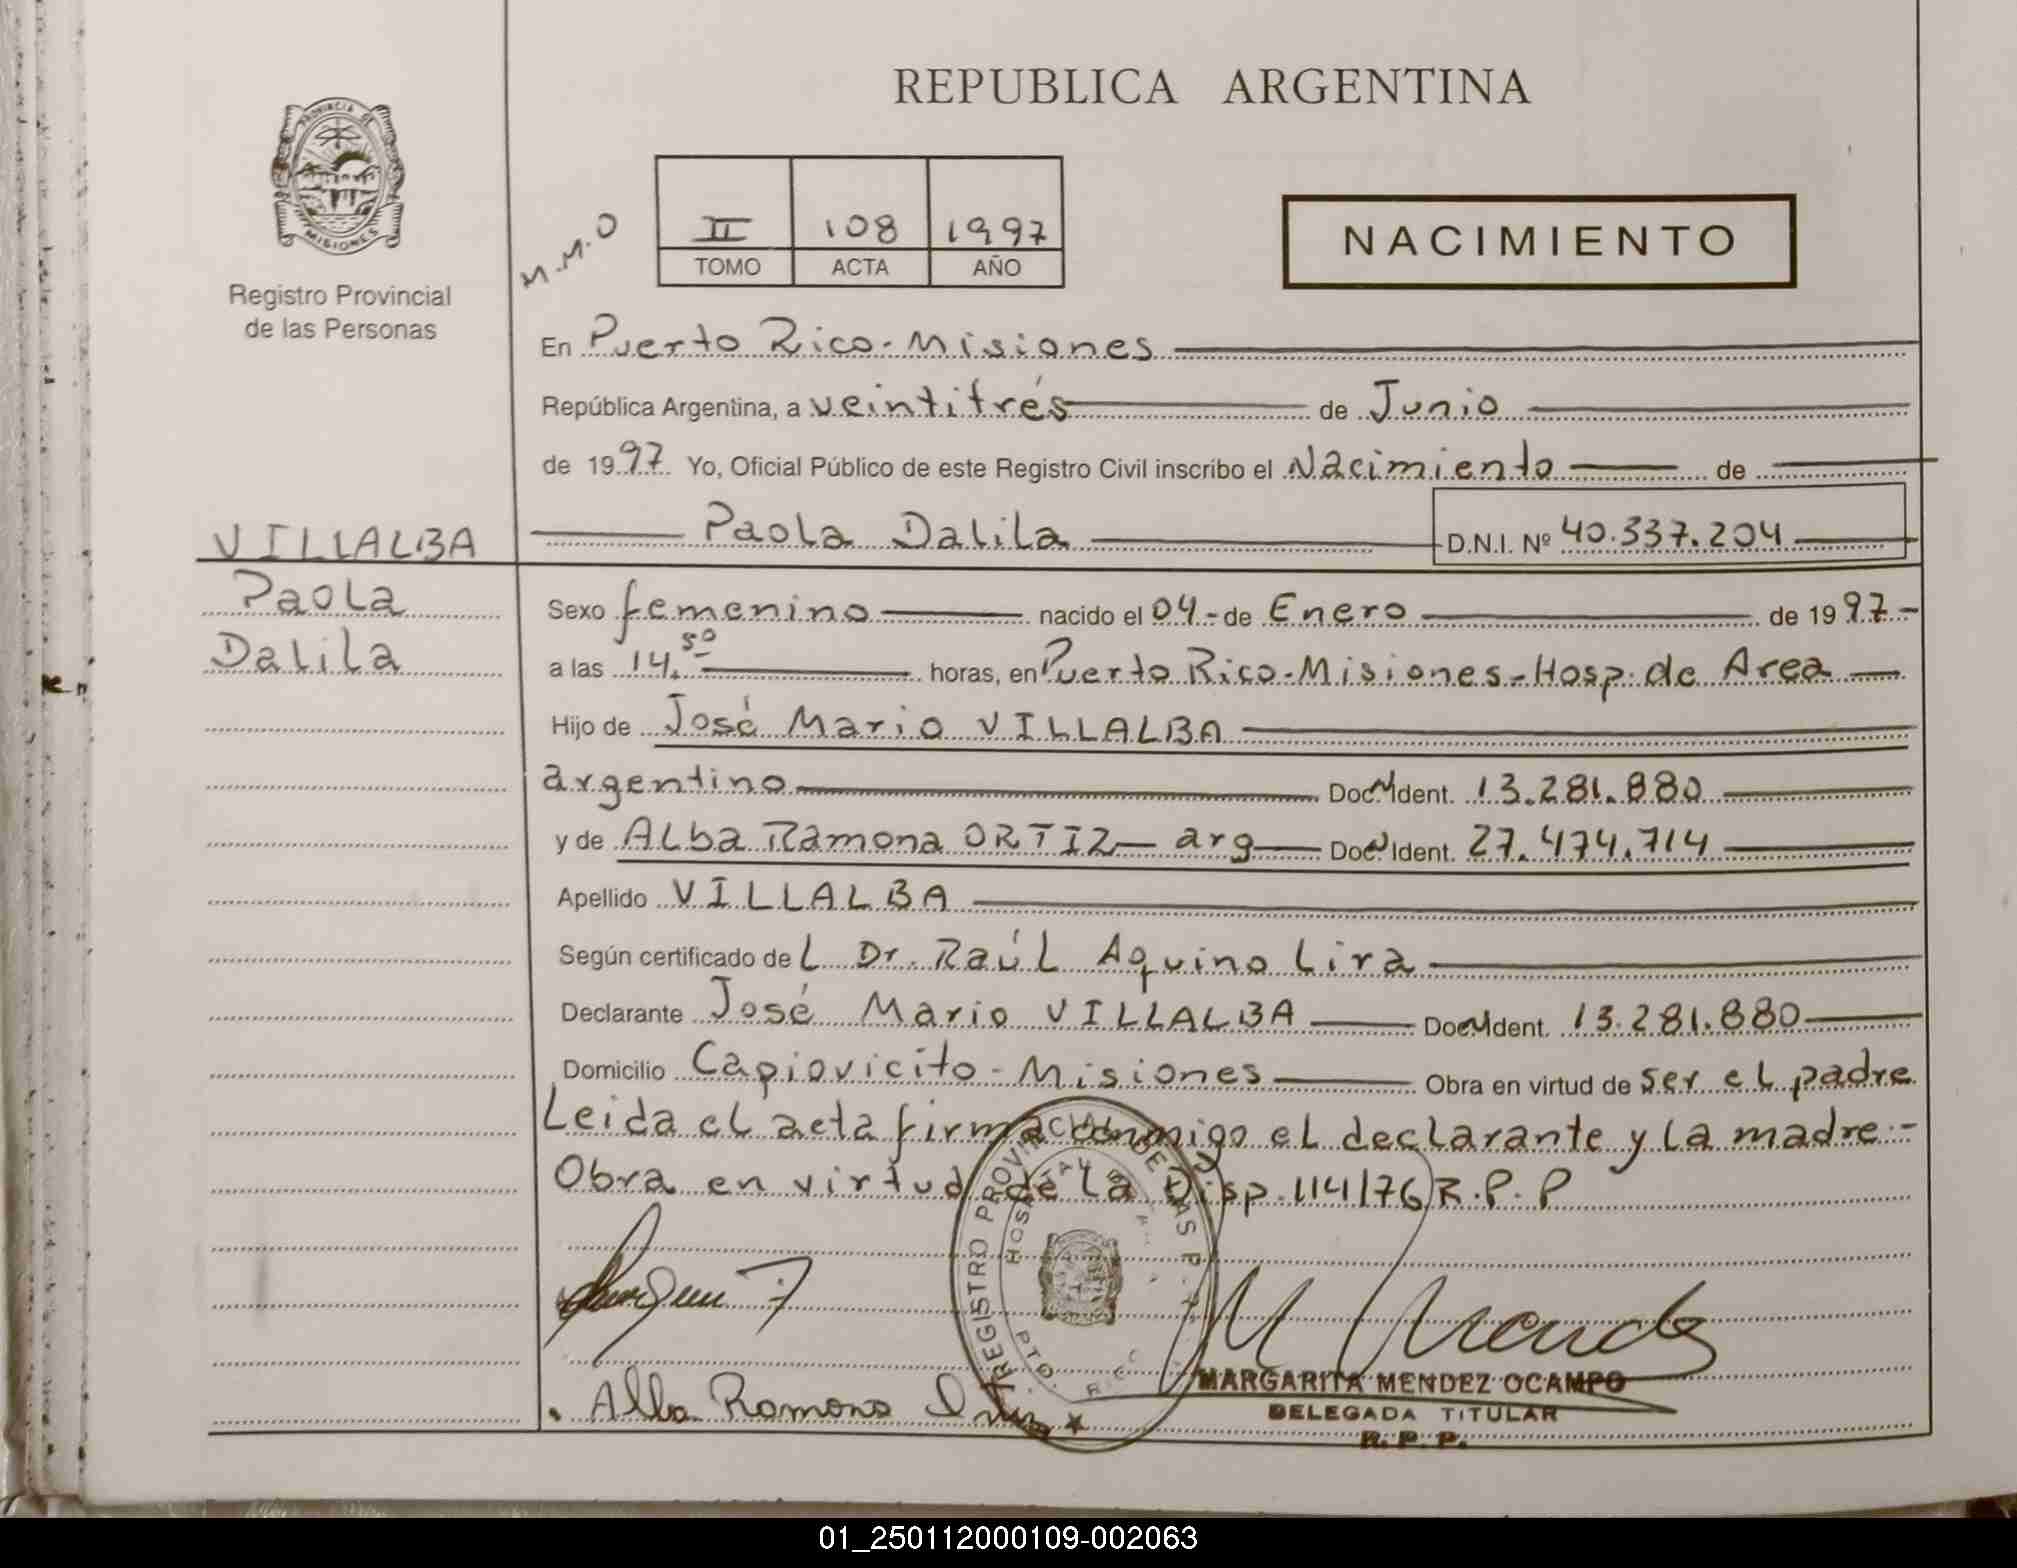 REPUBLICA ARGENTINA
PROVINCIA DE MISIONES
Registro Provincial
de las Personas
M.M.O
II 108 1997
TOMO ACTA AÑO
NACIMIENTO
En Puerto Rico - Misiones
República Argentina, a veintitrés de Junio
de 1997 Yo, Oficial Público de este Registro Civil inscribo el Nacimiento de
VILLALBA
Paola Dalila
D.N.I. Nº 40.337.204
Paola
Dalila
Sexo femenino nacido el 04 - de Enero de 1997 -
a las 14.50 horas, en Puerto Rico - Misiones - Hosp. de Area
Hijo de José Mario VILLALBA
argentino Doc. N Ident. 13.281.880
y de Alba Ramona ORTIZ - arg Doc. N Ident. 27.474.714
Apellido VILLALBA
Según certificado de L Dr. Raúl Aquino Lira
Declarante José Mario VILLALBA Doc. N Ident. 13.281.880
Domicilio Capiovicito - Misiones Obra en virtud de ser el padre
Leida el acta firma conmigo el declarante y la madre.-
Obra en virtud de la Disp. 114/76 R.P.P
REGISTRO PROVINCIAL DE LAS P
HOSPITAL
PTO. RICO
Alba Ramona Ortiz
M Mendez
MARGARITA MENDEZ OCAMPO
DELEGADA TITULAR
R. P. P.
01_250112000109-002063